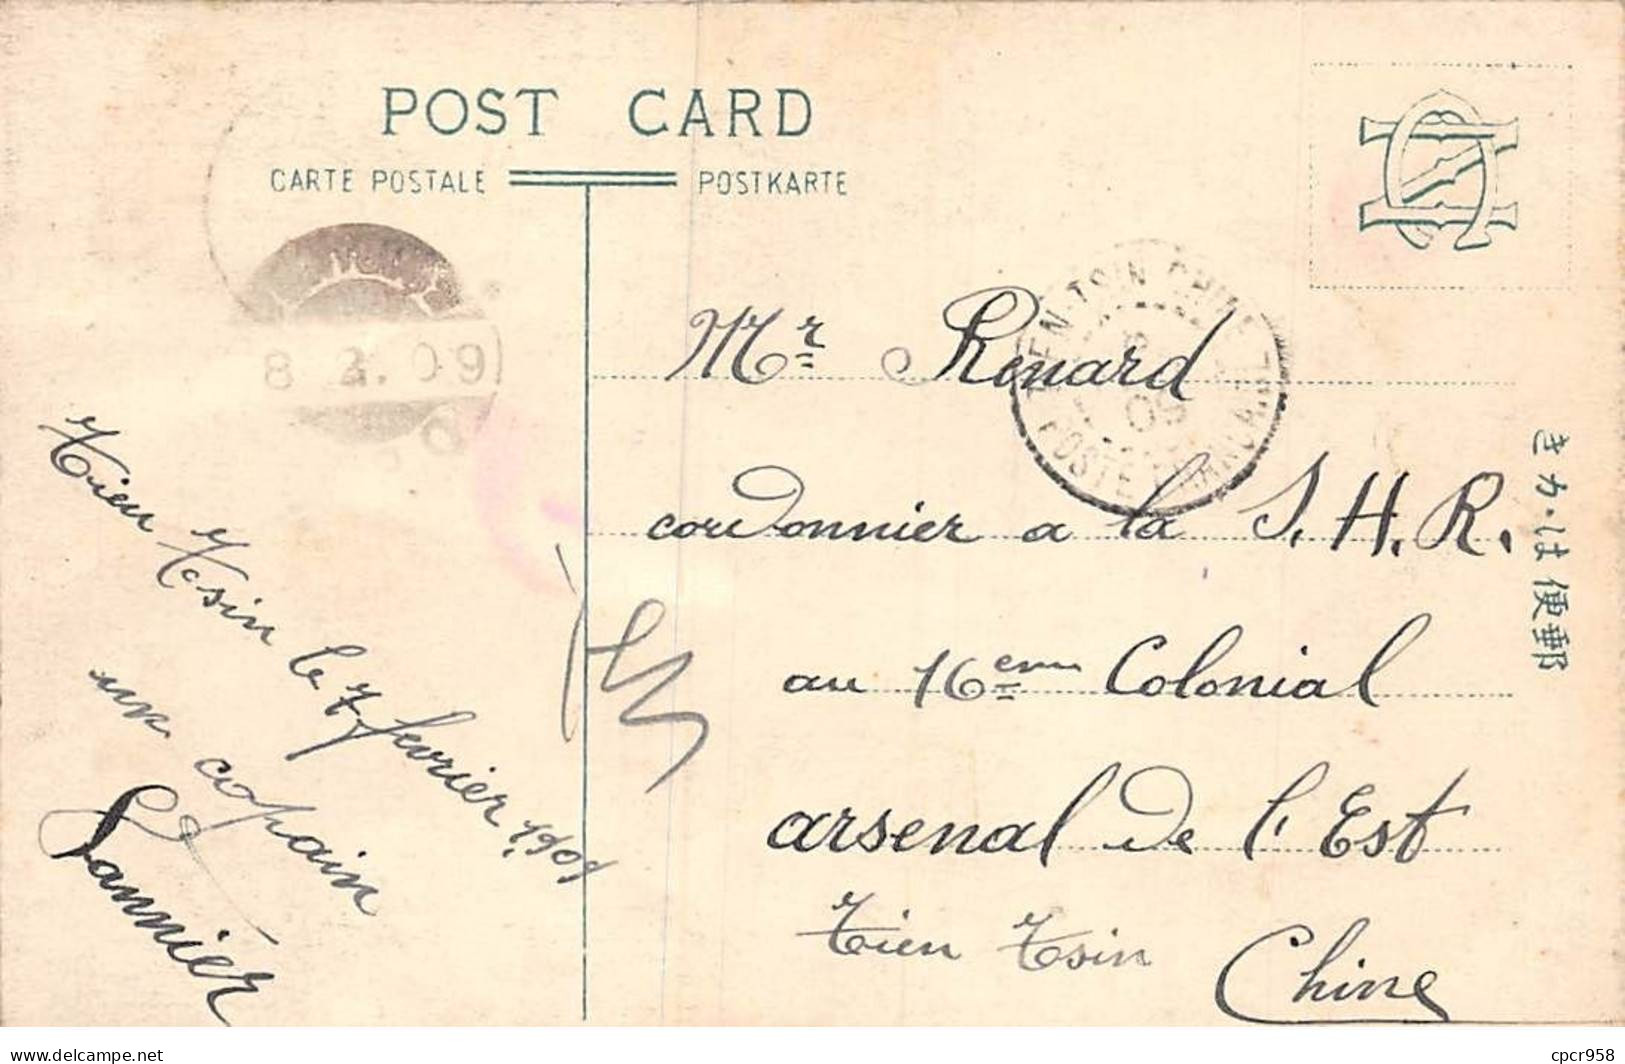 POST CARD
CARTE POSTALE
POSTKARTE
8 2. 09
TIEN-TSIN CHINE
09
POSTE FRANÇAISE
Mr Renard
cordonnier a la S. H. R.
au 16eme Colonial
arsenal de l'Est
Tien Tsin
Chine
Tien Tsin le 7 fevrier 1909
un copain
Lannier
きか・は便郵
cpcr958